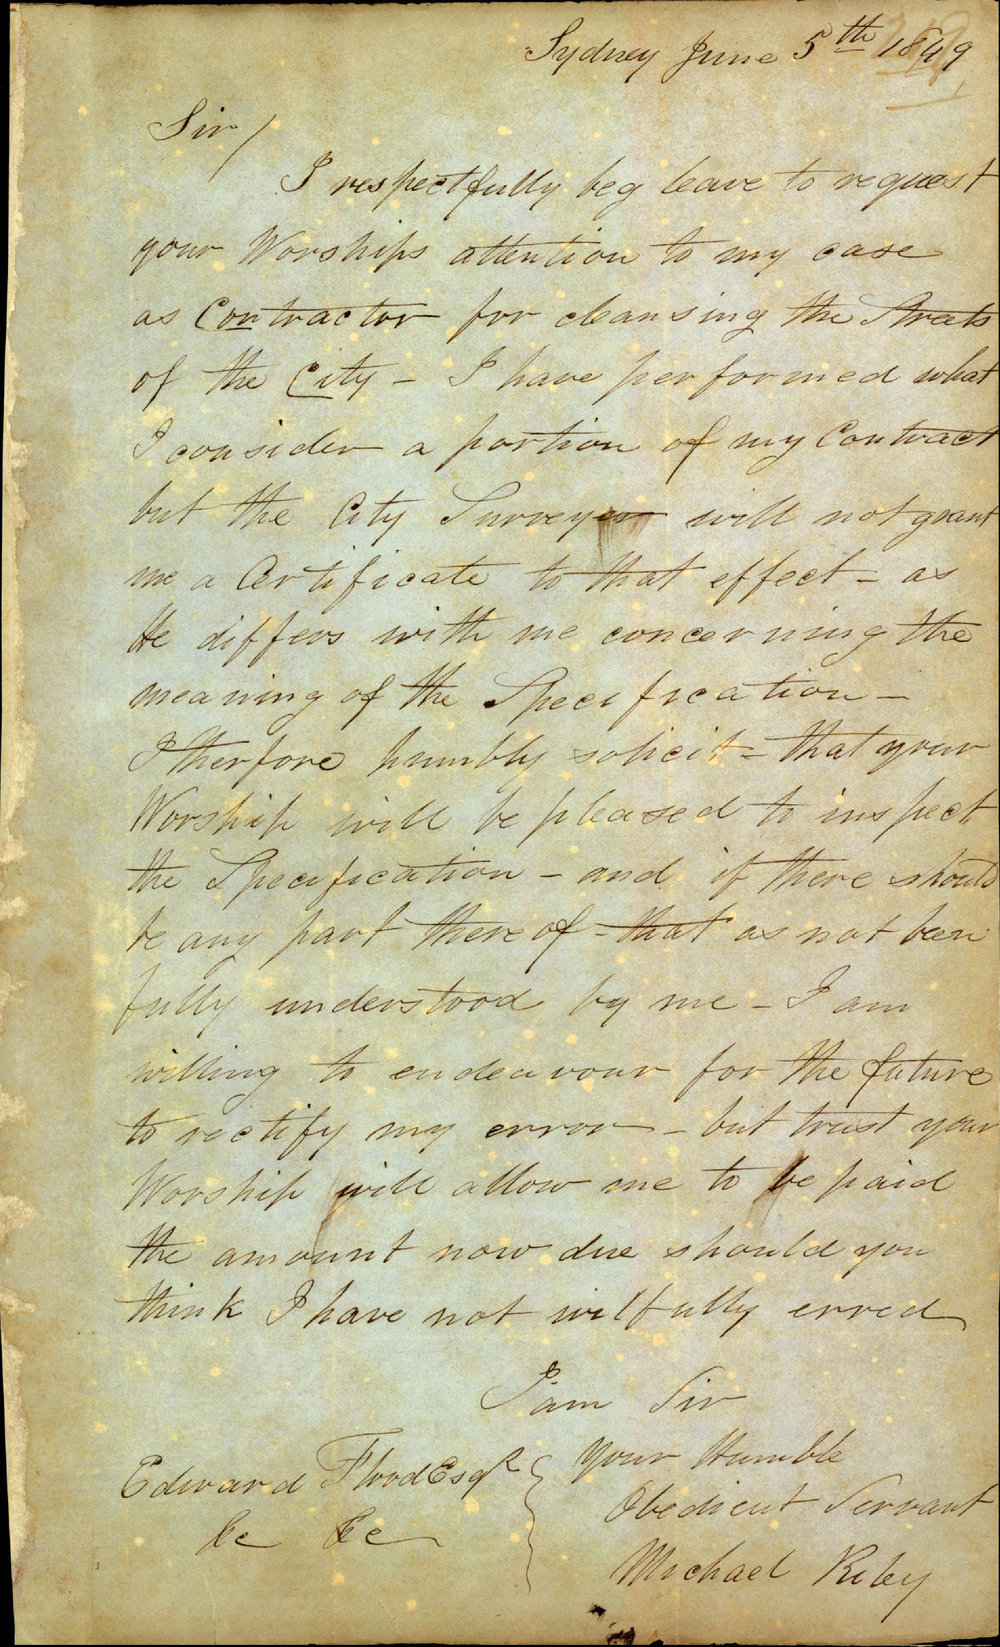 Sydney June 5th 1849
Sir/
I respectfully beg leave to request
your Worships attention to my case
as Contractor for cleansing the Streets
of the City - I have performed what
I consider a portion of my Contract
but the City Surveyor will not grant
me a Certificate to that effect - as
He differs with me concerning the
meaning of the Specification -
I therfore humbly solicit - that your
Worship will be pleased to inspect
the Specification - and if there should
be any part there of - that as not been
fully understood by me - I am
willing to endeavour for the future
to rectify my error - but trust your
Worship will allow me to be paid
the amount now due should you
think I have not wilfully erred
I am Sir
Your Humble
Obedient Servant
Michael Riley
Edward Flood Esqr
&c &c